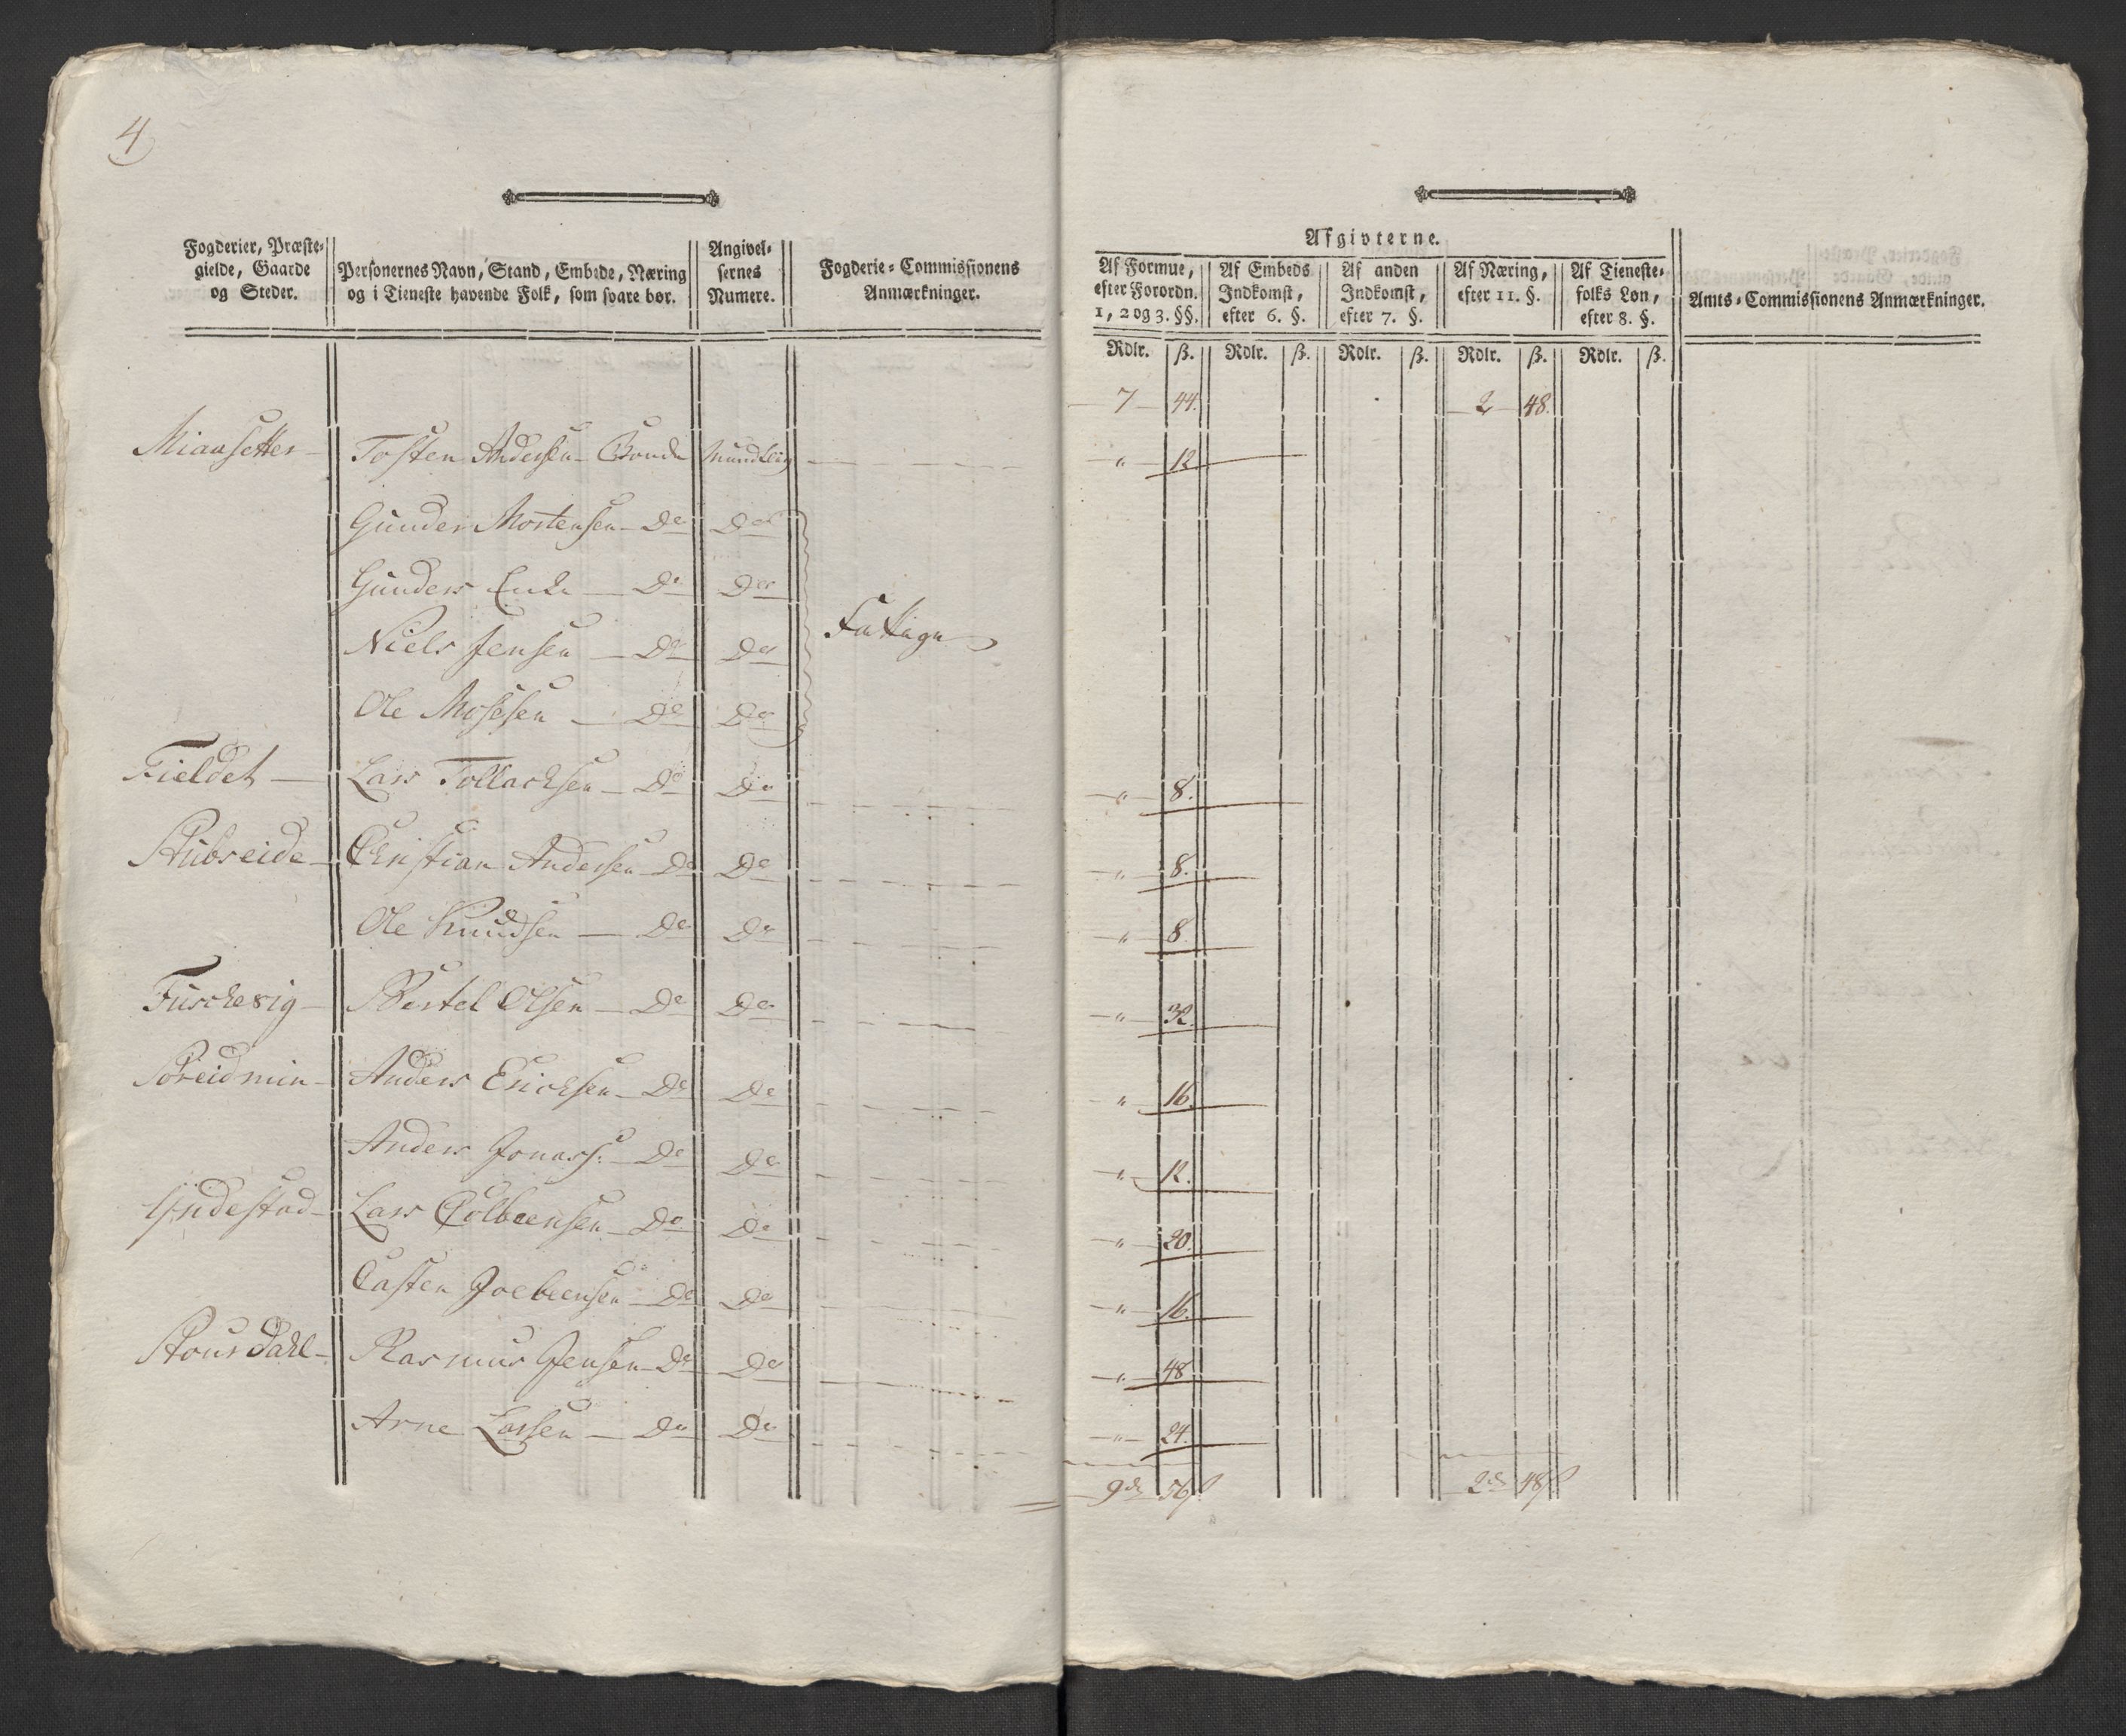 4
Fogderier, Præste-
gielde, Gaarde
og Steder.
Personernes Navn, Stand, Embede, Næring
og i Tieneste havende Folk, som svare bør.
Angivel-
sernes
Numere.
Fogderie-Commissionens
Anmærkninger.
Afgivterne.
Af Formue,
efter Forordn.
1, 2 og 3. §§.
Af Embeds
Indkomst,
efter 6. §.
Af anden
Indkomst,
efter 7. §.
Af Næring,
efter 11. §.
Af Tieneste-
folks Løn,
efter 8. §.
Amts-Commissionens Anmærkninger.
Rdlr. ß. Rdlr. ß. Rdlr. ß. Rdlr. ß. Rdlr. ß.
7 44. 2 48.
Miansetter Tosten Andersen Bonde Mundtlig " 12
Gunder Mortensen Do Do
Gunders Enke Do Do
Niels Jensen Do Do Fattige
Ole Mosesen Do Do
Fieldet Lars Tollachsen Do Do " 8.
Stubseide Christian Andersen Do Do " 8.
Ole Knudsen Do Do " 8
Furchevig Bertel Olsen Do Do " 32.
Breidmin Anders Erichsen Do Do " 16.
Anders Jonass: Do Do " 12.
Yndestad Lars Colbeensen Do Do " 20.
Casten Joebeensen Do Do " 16.
Stoursdahl Rasmus Jensen Do Do " 48
Arne Larsen Do Do " 24.
9 rd 56 ß 2 rd 48 ß